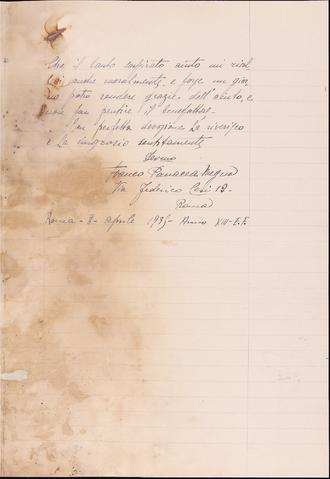 Che il tanto aiuto mi
anche moralmente, e forse un gior
no potrò rendere grazie dell'aiuto, e
non far pentire il benefattor
Con perfetta devozione La riverisco
e La ringrazio sentitamente
Devmo
Franco
Via Federico Cesi
Roma
Roma - 8 - aprile 1935 - Anno XIII - E.F.